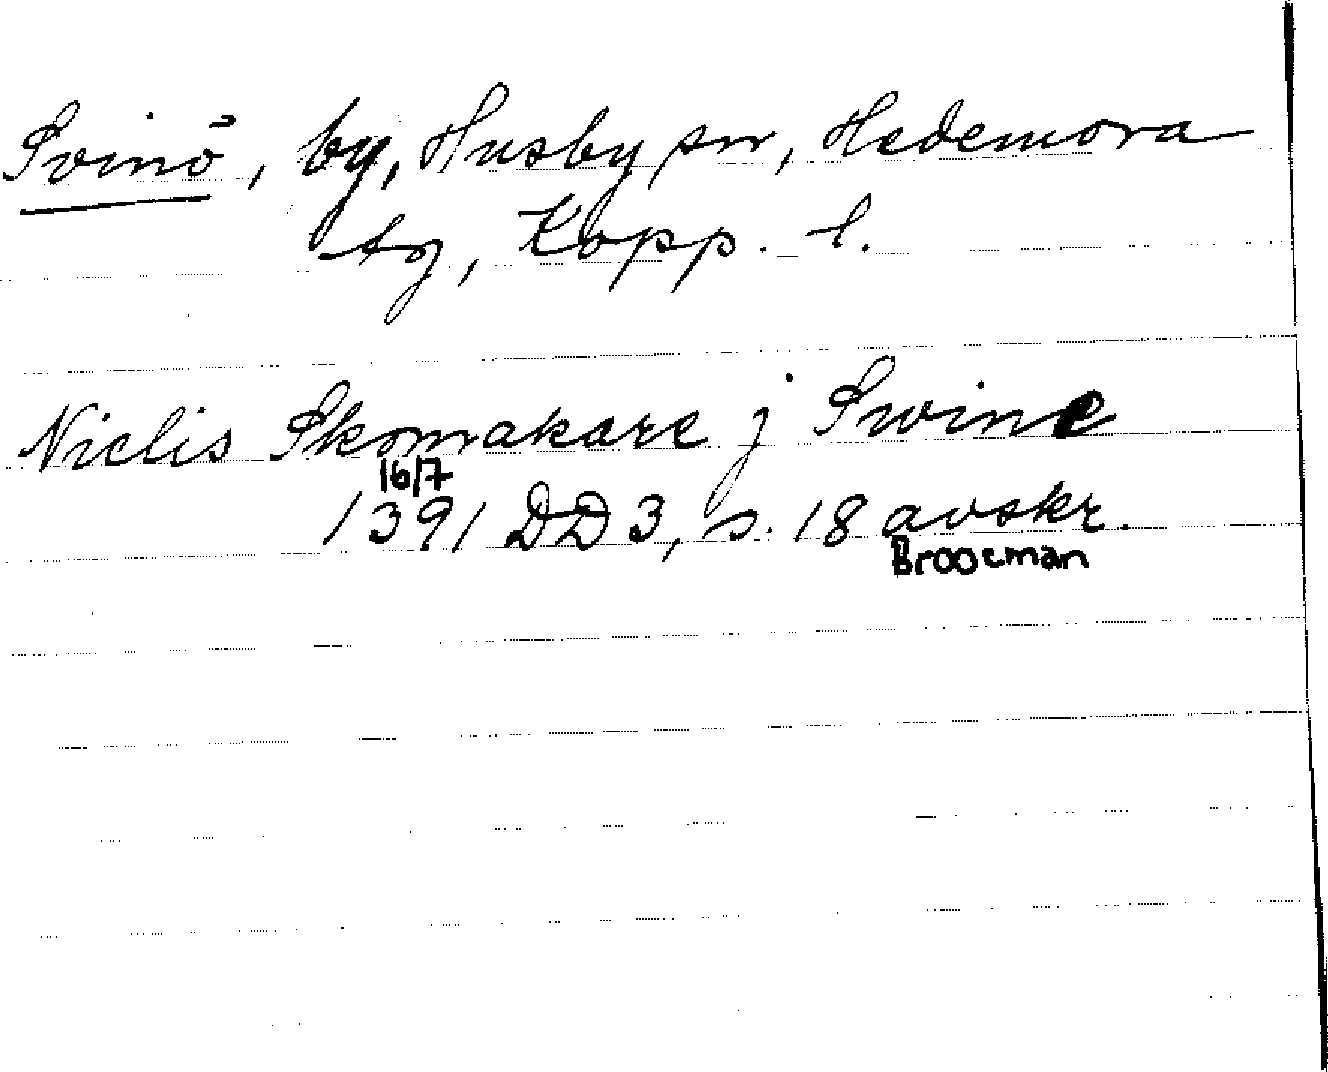 Svinö, by, Husby sn, Hedemora
tg, Kopp. l.
Niclis Skomakare j Swine
16/7
1391 DD 3, s. 18 avskr.
Brooeman